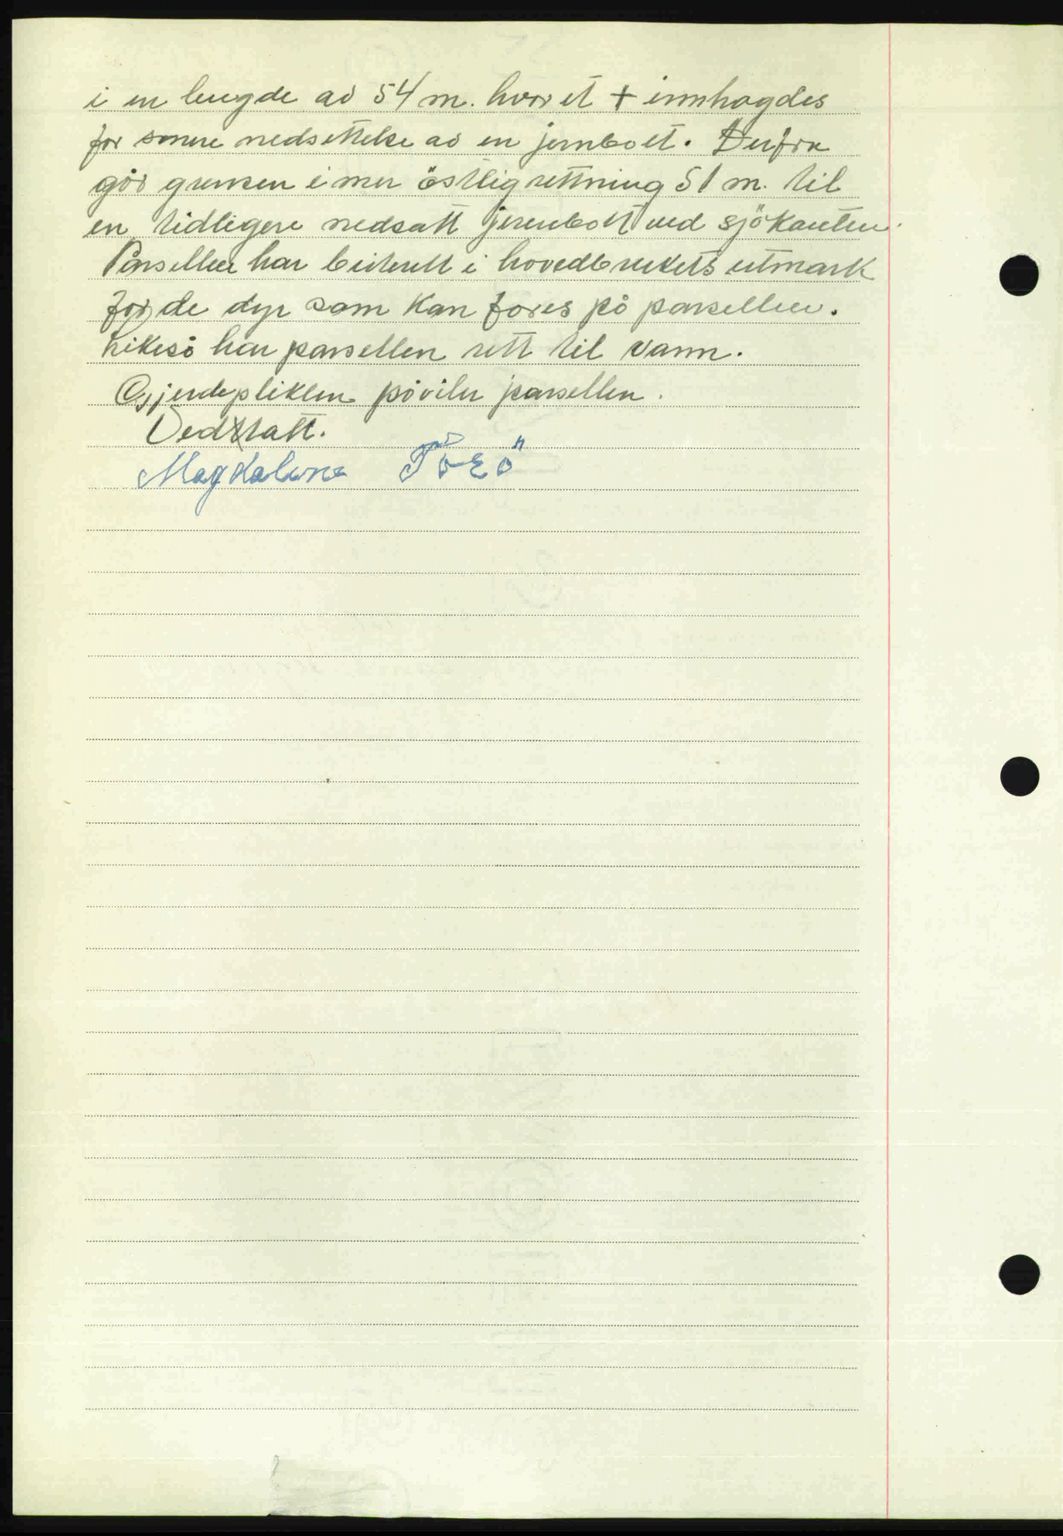 i en lengde av 54 m. hvor et + innhogdes
for senere nedsettelse av en jernbolt. Derfra
går grensen i mer östlig rettning 51 m. til
en tidligere nedsatt jernbolt ved sjökanten.
Parsellen har beiterett i hovedbrukets utmark
for de dyr som kan fores på parsellen.
Likeså har parsellen rett til vann.
Gjerdeplikten påviler parsellen.
Vedtatt.
Magdalene